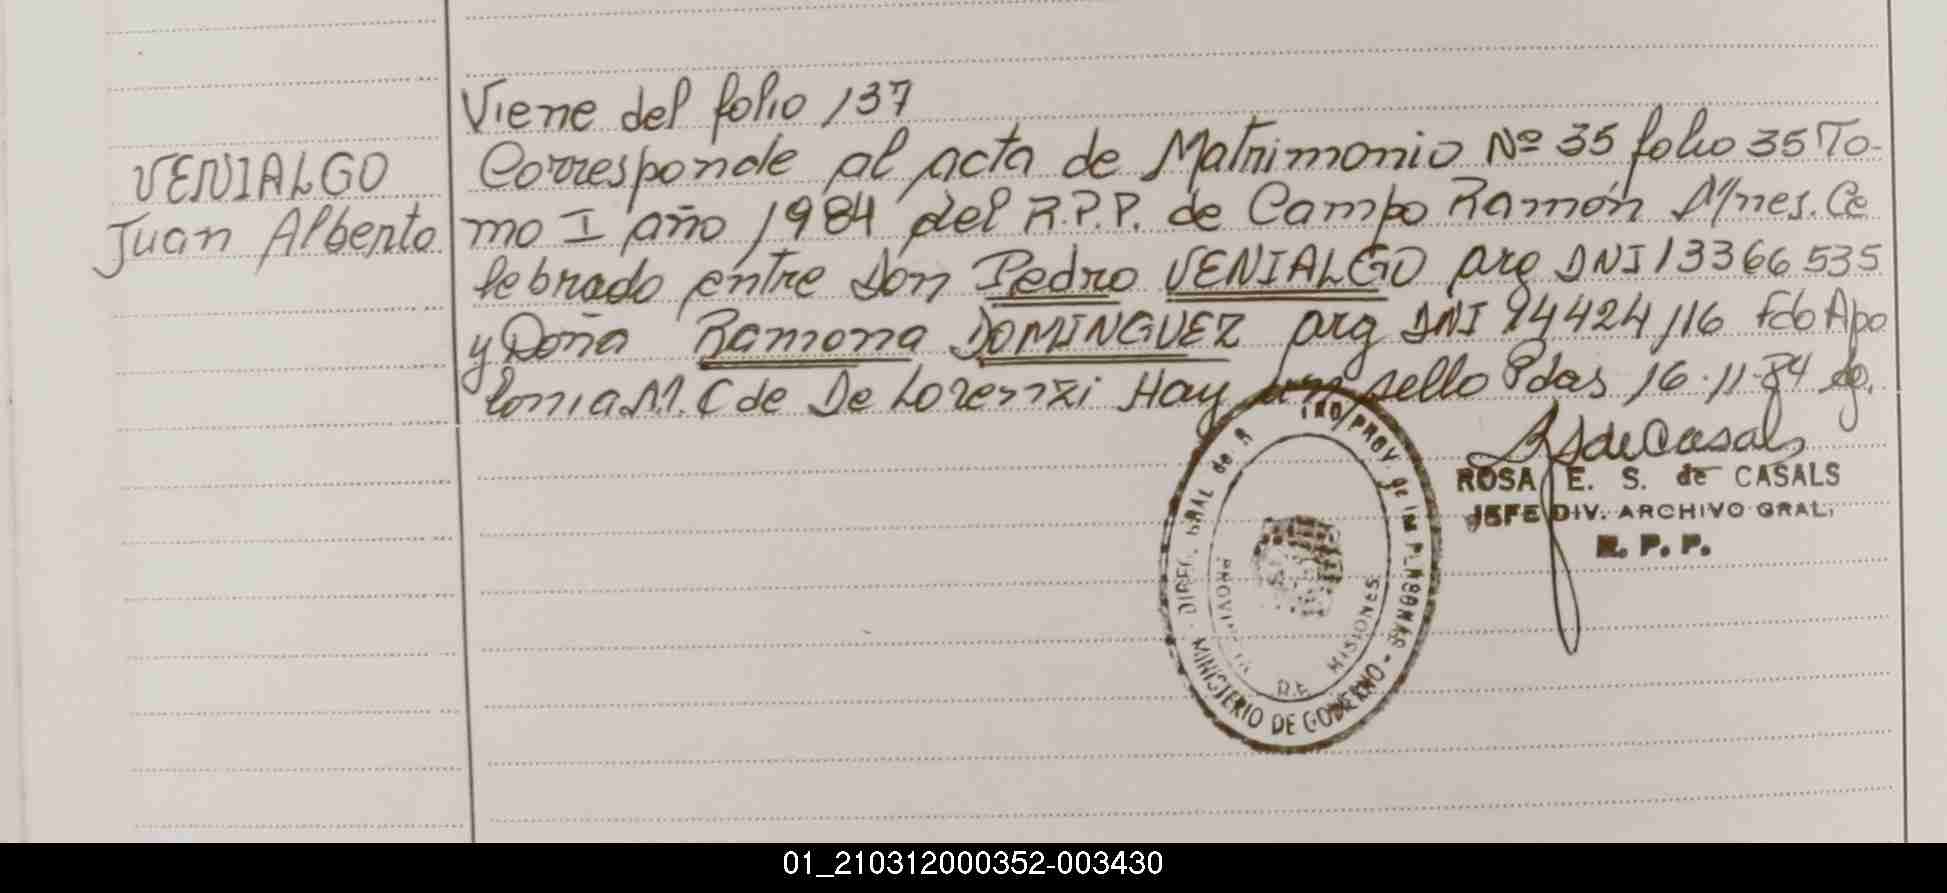 Viene del folio 137
VENIALGO
Juan Alberto
Corresponde al acta de Matrimonio Nº 35 folio 35 To-
mo I año 1984 del R.P.P. de Campo Ramón Mnes. Ce
lebrado entre Don Pedro VENIALGO arg DNI 13366535
y Doña Ramona DOMINGUEZ arg DNI 14424116 Fdo Apo
lonia M. C de De Lorenzi Hay un sello Pdas 16-11-84 dg.
RSdeCasals
ROSA E. S. de CASALS
JEFE DIV. ARCHIVO GRAL.
R. P. P.
DIREC. GRAL de R PROV. de las PERSONAS
MINISTERIO DE GOBIERNO
PROVINCIA DE MISIONES
01_210312000352-003430